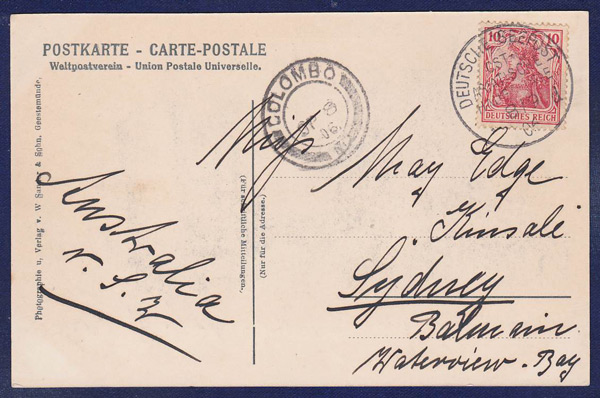 POSTKARTE - CARTE-POSTALE
Weltpostverein - Union Postale Universelle.
COLOMBO
DEUTSCHE SEEPOST
10 10
DEUTSCHES REICH
May Edge
Kinsale
Sydney
Balmain
Waterview-Bay
Australia
N.S.W
(Für schriftliche Mitteilungen.)
(Nur für die Adresse.)
Photographie u. Verlag v. W Sander & Sohn, Geestemünde.